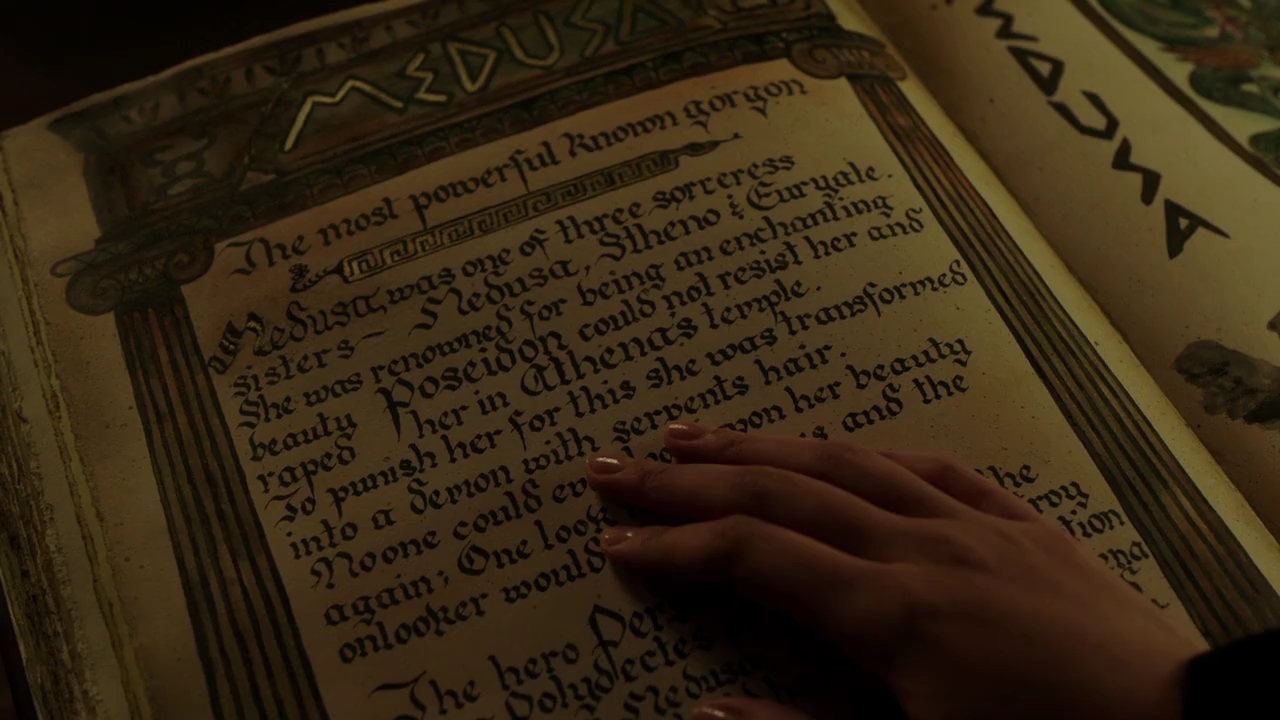 MEDUSA
The most powerful known gorgon
Medusa, was one of three sorceress
sisters - Medusa, Stheno & Euryale.
She was renowned for being an enchanting
beauty Poseidon could not resist her and
raped her in Athenas temple.
To punish her for this she was transformed
into a demon with serpents hair.
No one could ev upon her beauty
again; One look is and the
onlooker would
The hero Per the
Polydectes roy
Medusa tion
MEDUSA